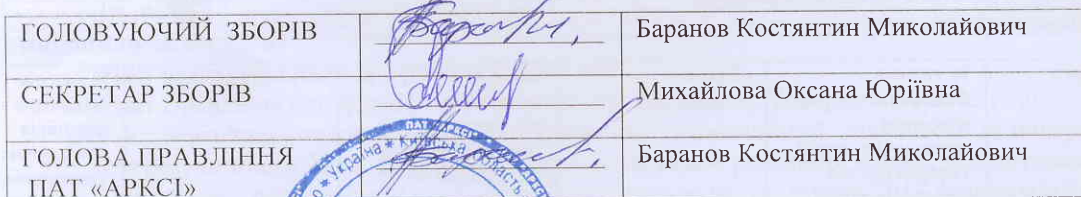 ГОЛОВУЮЧИЙ ЗБОРІВ Баранов Костянтин Миколайович
СЕКРЕТАР ЗБОРІВ Михайлова Оксана Юріївна
ГОЛОВА ПРАВЛІННЯ Баранов Костянтин Миколайович
ПАТ «АРКСІ»
* Україна * Київська область